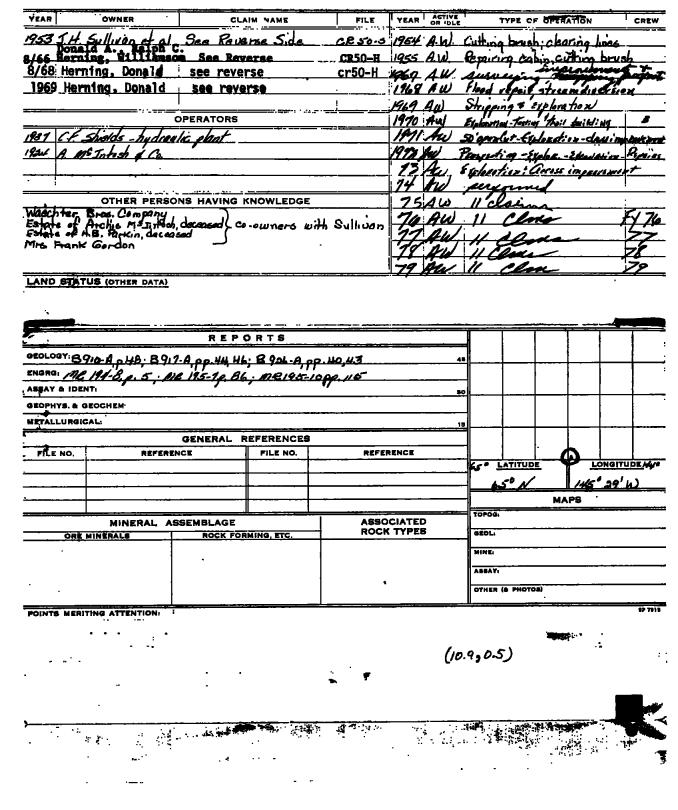 YEAR OWNER CLAIM NAME FILE YEAR ACTIVE OR IDLE TYPE OF OPERATION CREW
1953 J.H. Sullivan et al See Reverse Side CR50-5 1954 A.W. Cutting brush; clearing lines
Donald A., Ralph C.
8/66 Herning, Williamson See Reverse CR50-H 1955 A.W. Repairing cabin, cutting brush
8/68 Herning, Donald see reverse cr50-H 1967 A.W surveying
1969 Herning, Donald see reverse 1968 AW Flood repair, stream diversion
1969 AW Stripping & exploration
OPERATORS 1970 AW Testing trail building
1937 C.F. Shields - hydraulic plant 1971 AW
1924 A. McIntosh & Co. 1972 AW Prospecting - Explor. - Repairs
73 AW Exploration; Access improvement
74 AW
OTHER PERSONS HAVING KNOWLEDGE 75 AW " claims
Waechter Bros. Company 76 AW " Clms FY 76
Estate of Archie McIntosh, deceased } co-owners with Sullivan
Estate of A.B. Parkin, deceased 77 AW " Clms 77
Mrs Frank Gordon 78 AW " Clms 78
79 AW " Clm 79
LAND STATUS (OTHER DATA)
REPORTS
GEOLOGY: B 910-A, p 48; B 917-A, pp. 44, 46; B 926-A, pp. 40, 43 45
ENGRG: MR 194-8, p. 5; MR 195-7 p. B6; MR 195-10 pp. 115
ASSAY & IDENT: 30
GEOPHYS. & GEOCHEM
METALLURGICAL: 15
GENERAL REFERENCES
FILE NO. REFERENCE FILE NO. REFERENCE
65° LATITUDE LONGITUDE 144°
65° N 145° 29' W
MAPS
TOPOG:
MINERAL ASSEMBLAGE ASSOCIATED ROCK TYPES
ORE MINERALS ROCK FORMING, ETC.
GEOL:
MINE:
ASSAY:
OTHER (& PHOTOS)
POINTS MERITING ATTENTION:
(10.9, 0.5)